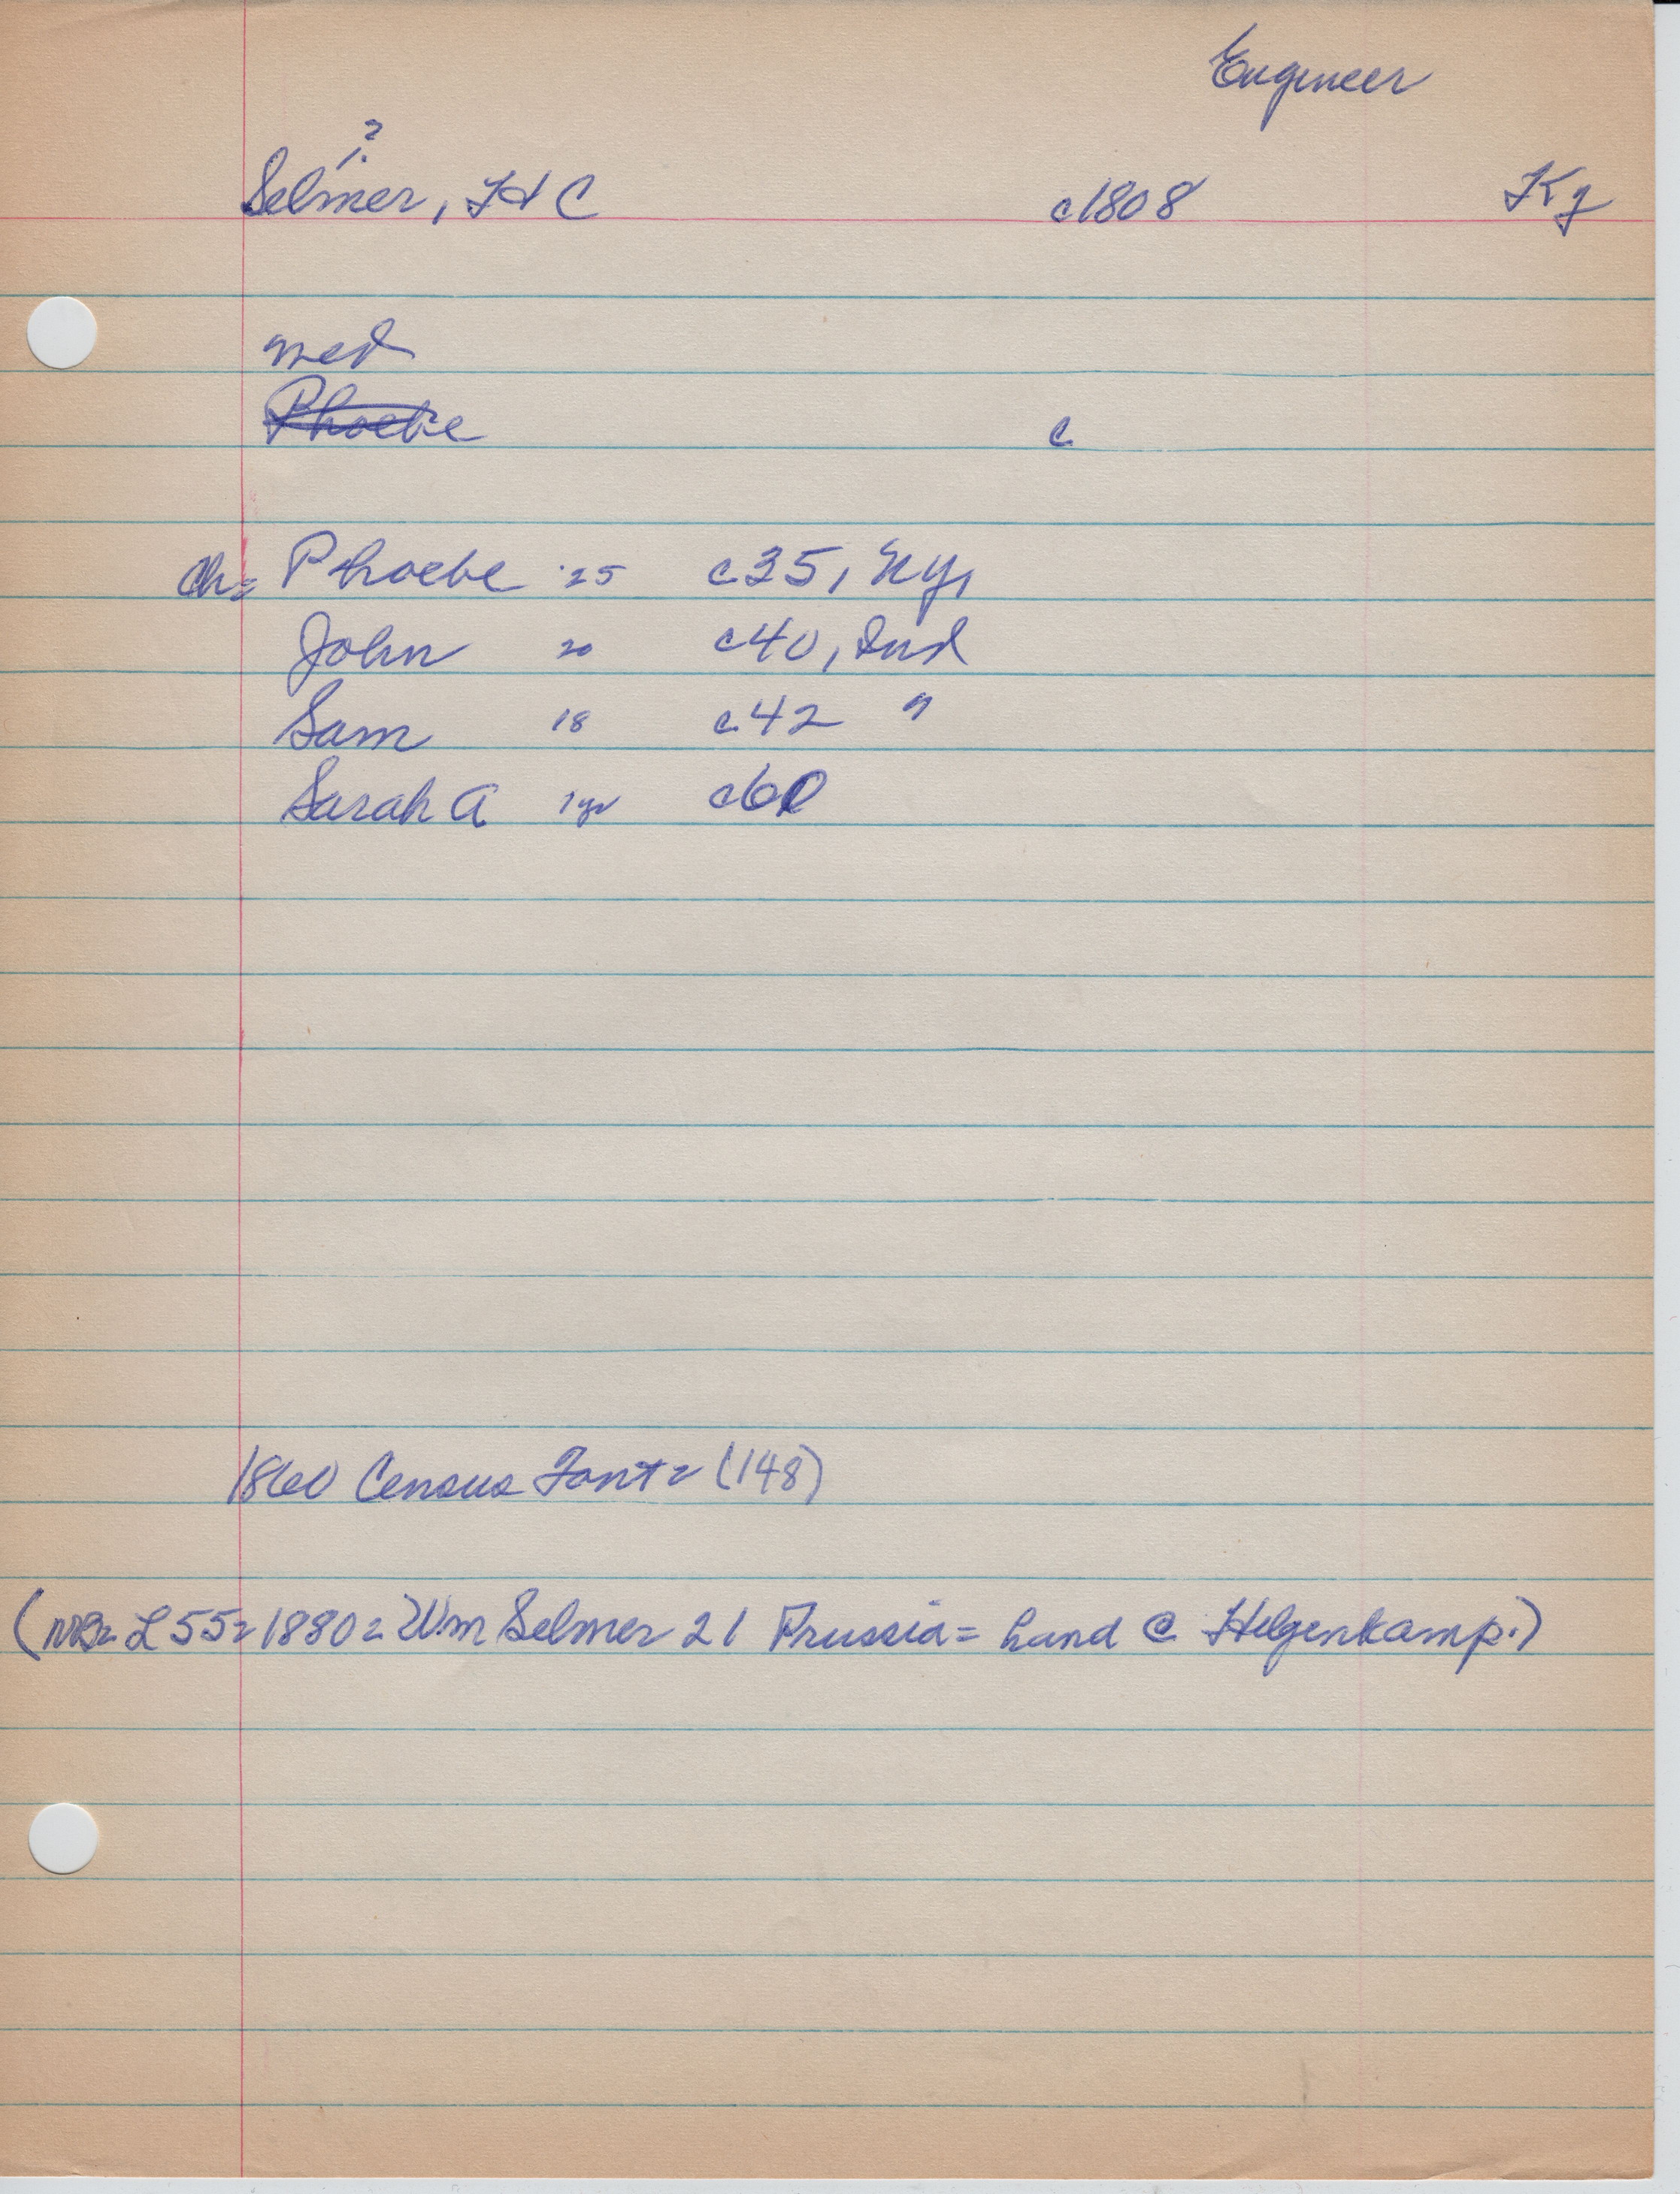 Engineer
?
Selmer, H C c1808 Ky
med
Phoebe c
Ch= Phoebe 25 c35, Ky,
John 20 c40, Ind
Sam 18 c42 "
Sarah A 1yr c60
1860 Census (148)
(NB= L 55= 1880= Wm Selmer 21 Prussia= hand @ Helgenkamp.)